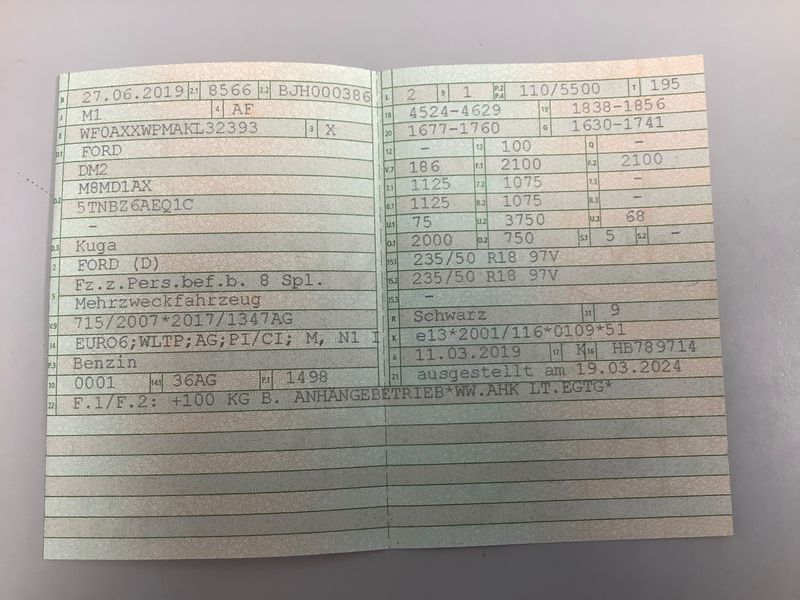 B 27.06.2019 2.1 8566 2.2 BJH000386
J M1 4 AF
E WF0AXXWPMAKL32393 3 X
D.1 FORD
DM2
D.2 M8MD1AX
5TNBZ6AEQ1C
–
D.3 Kuga
2 FORD (D)
5 Fz.z.Pers.bef.b. 8 Spl.
Mehrzweckfahrzeug
V.9 715/2007*2017/1347AG
14 EURO6;WLTP;AG;PI/CI; M, N1 I
P.3 Benzin
10 0001 14.1 36AG P.1 1498
22 F.1/F.2: +100 KG B. ANHÄNGEBETRIEB*WW.AHK LT.EGTG*
L 2 9 1 P.2 P.4 110/5500 T 195
18 4524–4629 19 1838–1856
20 1677–1760 G 1630–1741
12 – 13 100 Q –
V.7 186 F.1 2100 F.2 2100
7.1 1125 7.2 1075 7.3 –
8.1 1125 8.2 1075 8.3 –
U.1 75 U.2 3750 U.3 68
O.1 2000 O.2 750 S.1 5 S.2 –
15.1 235/50 R18 97V
15.2 235/50 R18 97V
15.3 –
R Schwarz 11 9
K e13*2001/116*0109*51
6 11.03.2019 17 K 16 HB789714
21 ausgestellt am 19.03.2024